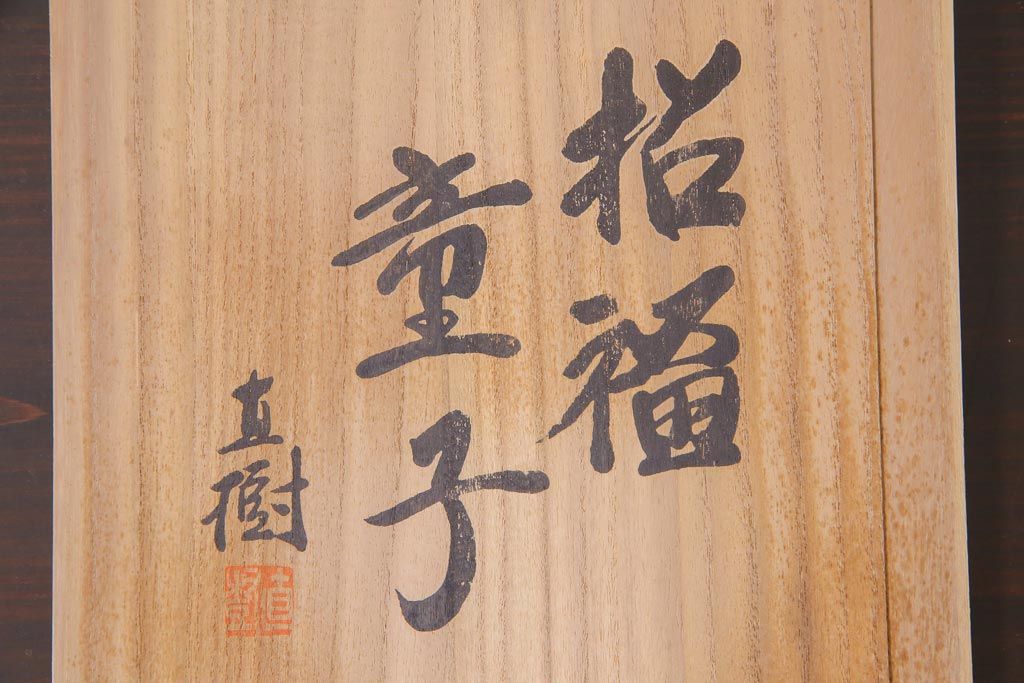 招福
童子
直樹